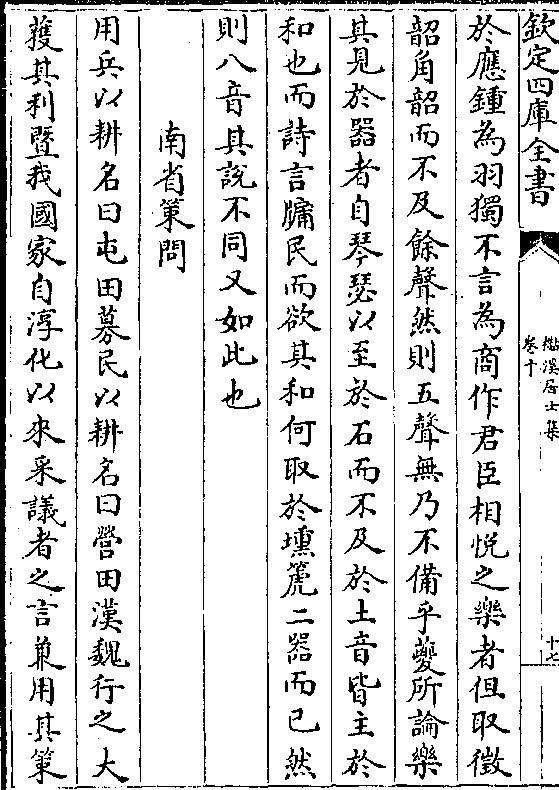 欽定四庫全書
谿居士集
卷十
十七
於應鍾為羽獨不言為商作君臣相悅之樂者但取徵
韶角韶而不及餘聲然則五聲無乃不備乎夔所論樂
其見於器者自琴瑟以至於石而不及於土音皆主於
和也而詩言牖民而欲其和何取於壎篪二器而已然
則八音其說不同又如此也
南省策問
用兵以耕名曰屯田募民以耕名曰營田漢魏行之大
獲其利暨我國家自淳化以來采議者之言兼用其策